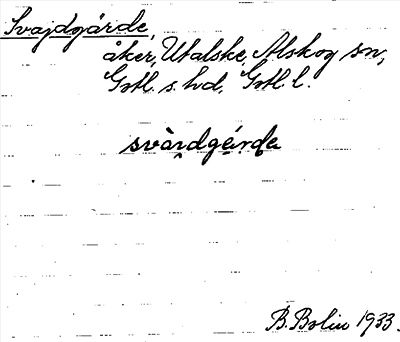 Svajdgärde,
åker, Utalske, Alskog sn,
Gotl. s. hd, Gotl. l.
svàrdgárda
B. Bolin 1933.